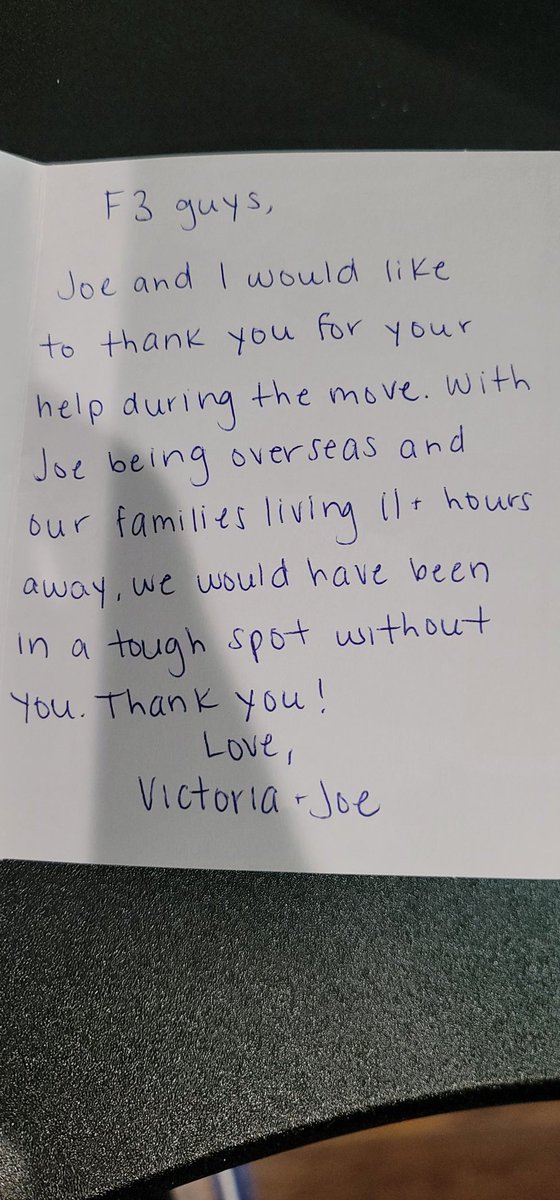 F3 guys,
Joe and I would like
to thank you for your
help during the move. With
Joe being overseas and
our families living 11+ hours
away, we would have been
in a tough spot without
you. Thank you!
Love,
Victoria + Joe